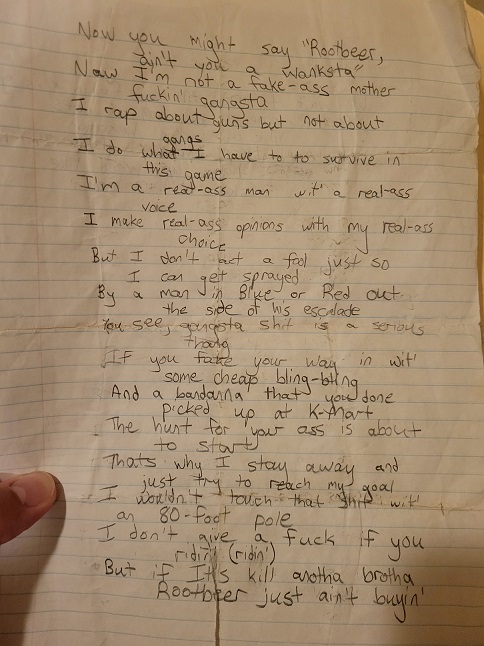 Now you might say "Rootbeer,
ain't you a wanksta"
Naw I'm not a fake-ass mother
fuckin' gangsta
I rap about guns but not about
gangs
I do what I have to to survive in
this game
I'm a real-ass man wit' a real-ass
voice
I make real-ass opinions with my real-ass
choice
But I don't act a fool just so
I can get sprayed
By a man in Blue or Red out
the side of his escalade
You see, gangsta shit is a serious
thang
If you fake your way in wit'
some cheap bling-bling
And a bandanna that you done
picked up at K-Mart
The hunt for your ass is about
to start
Thats why I stay away and
just try to reach my goal
I wouldn't touch that shit wit'
an 80-foot pole
I don't give a fuck if you
ridin' (ridin')
But if It's kill anotha brotha
Rootbeer just ain't buyin'